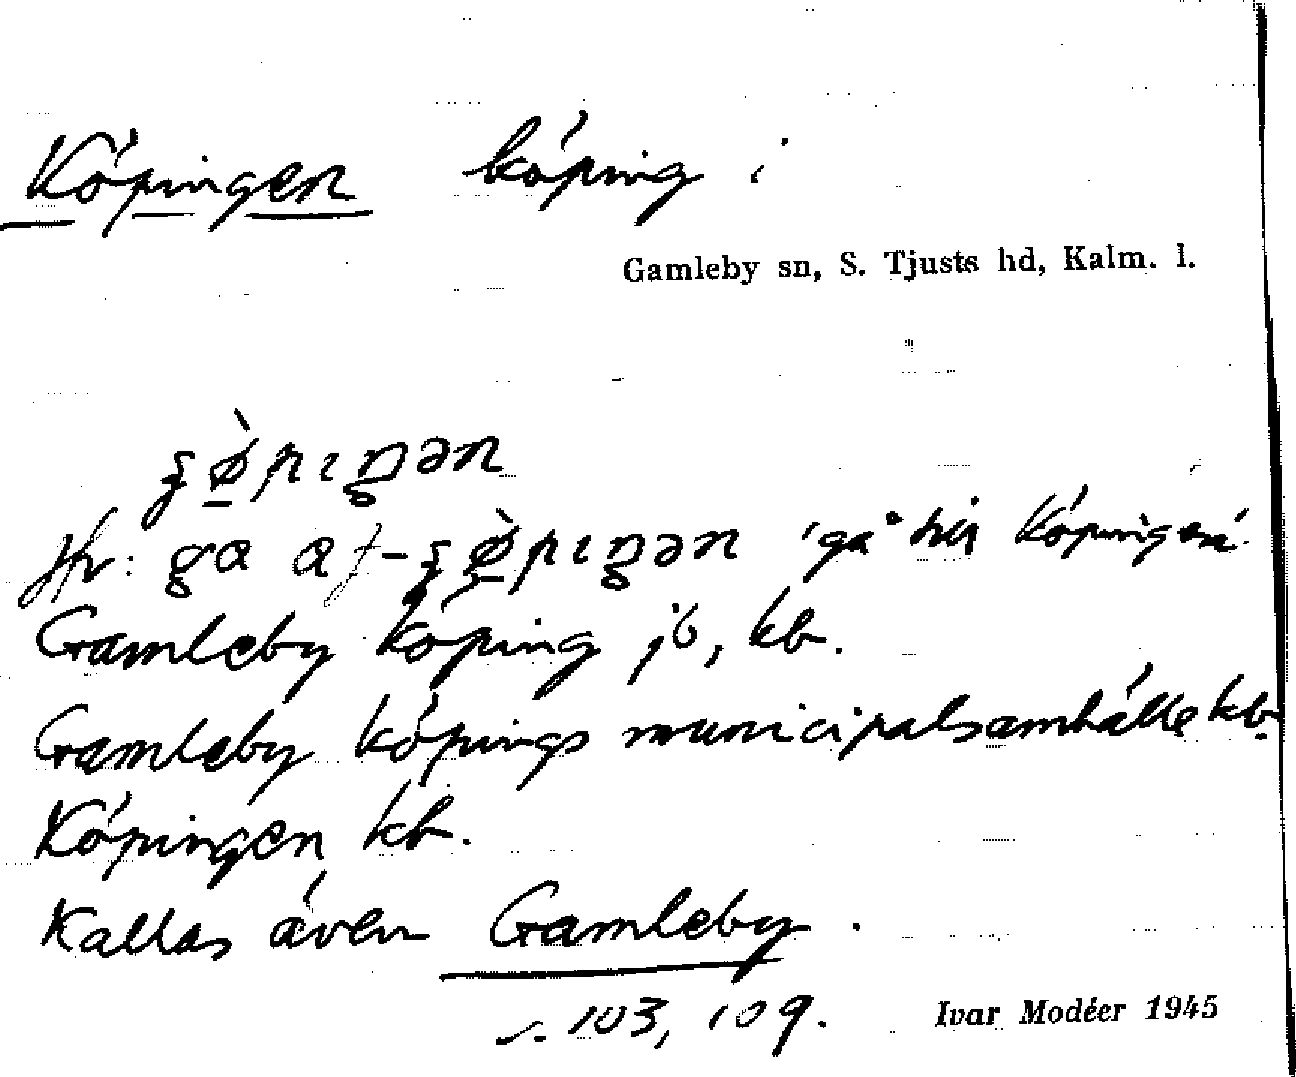 Köpingen köping i
Gamleby sn, S. Tjusts hd, Kalm. l.
Hr: 'gå hit Köpingen'
Gamleby köping jb, kb.
Gamleby köpings municipalsamhälle kb.
Köpingen, kb.
Kallas även Gamleby.
s. 103, 109.
Ivar Modéer 1945